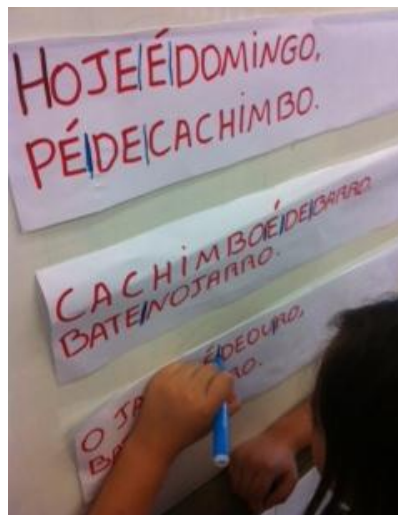 HOJE|É|DOMiNGO,
PÉ|DE|CACHiMBO.
CACHiMBO|É|DE|BARRO.
BATE|NOJARRO.
O É|DEOURO,